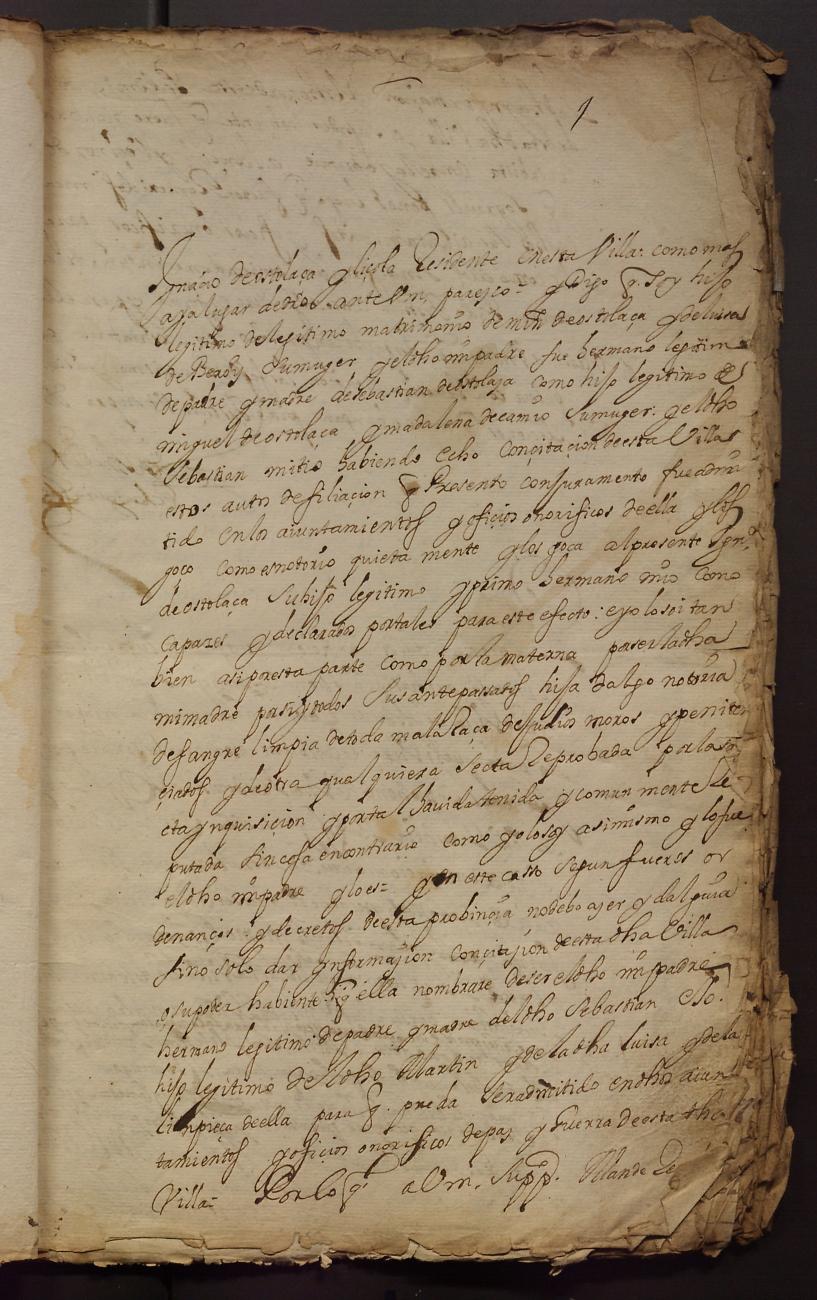 1
Ignacio de ostolaça y liçola Residente en esta Villa: como mas
aya lugar de dro ante Vm, parezco= y Digo q. soy hijo
legitimo de legitimo matrimonio de mrn de ostolaça y de luisa
de Su muger y el dho mi padre fue hermano legitimo
de padre y madre de sebastian de ostolaça como hijo legitimo de
miguel de ostolaça y madalena de Su muger: y el dho
Sebastian mi tio habiendo echo con çitaçion de esta Villa
estos autos de filiaçion q Presento con juramento fue admi
tido en los aiuntamientos y ofiçios onorificos de ella y los
goço como es notorio quieta mente y los goça al presente
de ostolaça Su hijo legitimo y primo hermano mio como
capazes y declarados por tales para este efecto: e yo lo soi tan
bien asi por esta parte como por la materna por ser la dha
mi madre por si y todos Sus antepassados hija dalgo notoria
de sangre limpia de toda mala Raça de judios moros y peniten
çiados y de otra qualquiera Secta Reprobada por la san
cta ynquisiçion y por tal havida tenida y comun mente Re
putada Sin cosa en contrario como yo lo soy asimismo y lo fue
el dho mi padre y lo es= y en este casso segun fueros or
denanças y decretos de esta probinçia no debo açer y dalguia
Sino solo dar ynformaçion con çitaçion de esta dha Villa
o su poder habiente q ella nombrare de ser el dho mi padre
hermano legitimo de padre y madre del dho Sebastian e io
hijo legitimo del dho Martin y de la dha luisa y de la
limpieça de ella para q. pueda Ser admitido en dhos aiun
tamientos y ofiçios onorificos de paz y guerra de esta dha
Villa= Por lo q a Vm, Supp. Mande